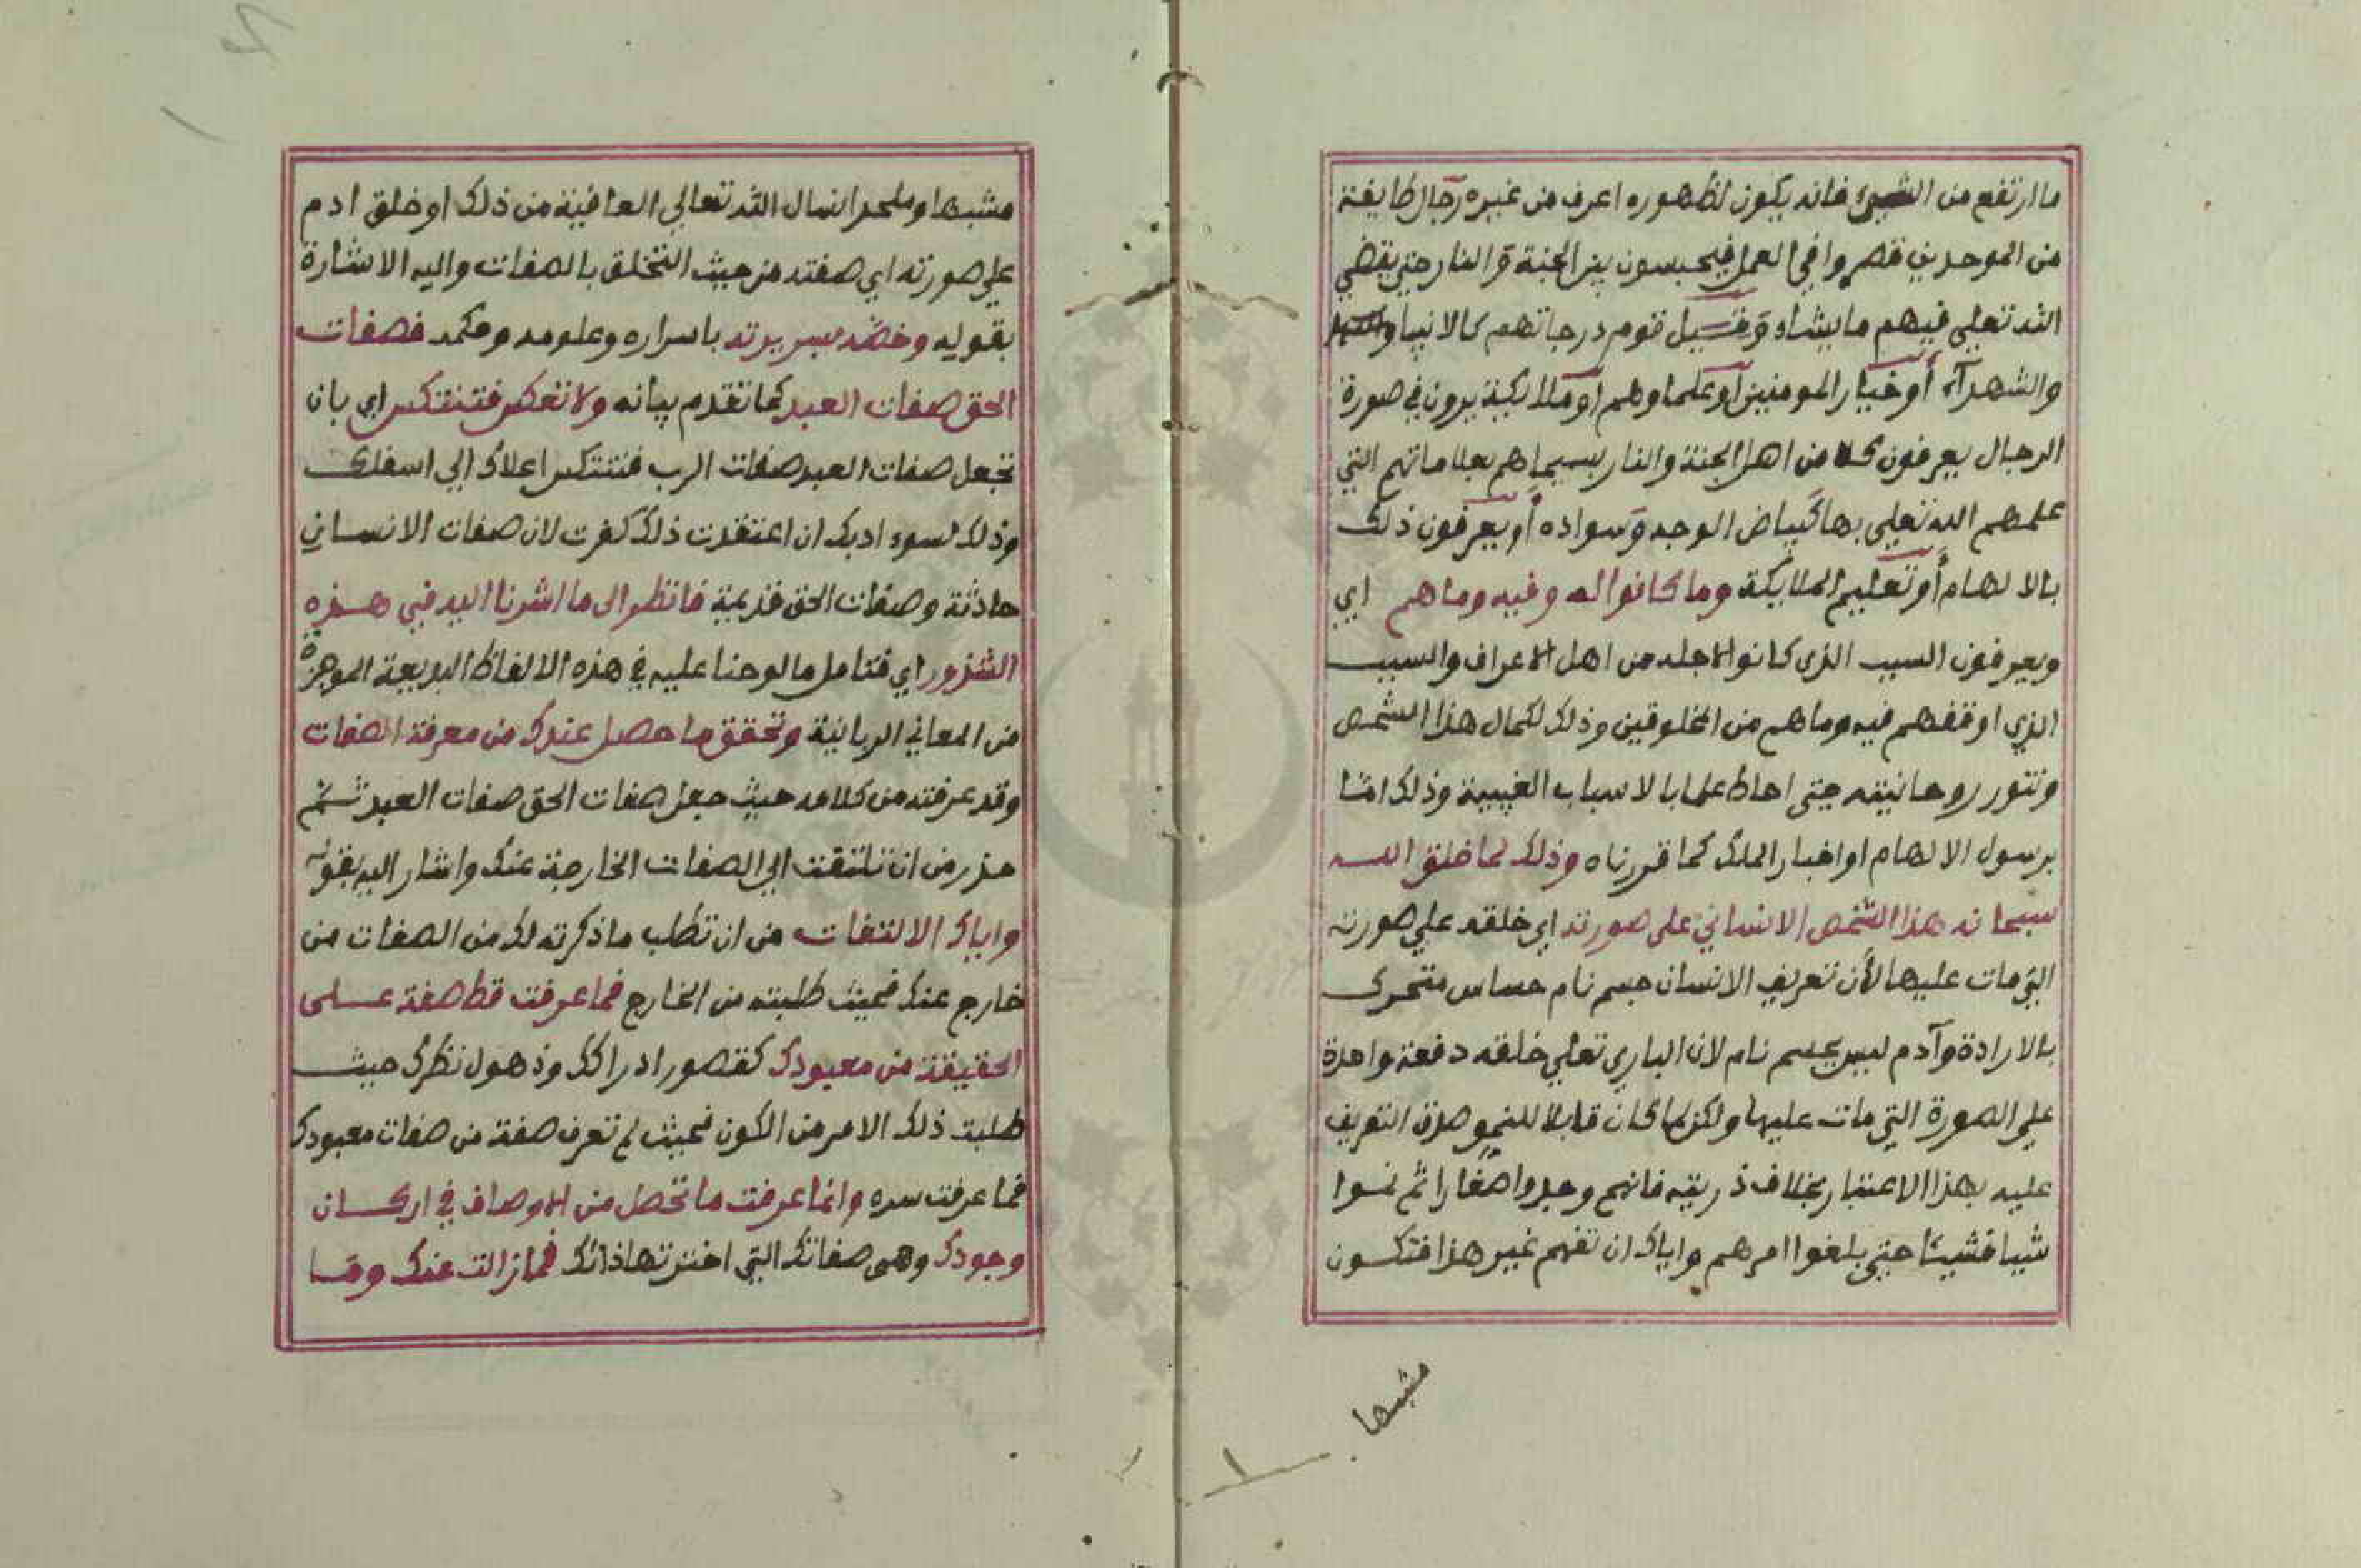 ما ارتفع من الشيئ فانه يكون لظهوره اعرف من غيره رجال طايفة
من الموحدين قصروا في العمل فيحبسون بين الجنة و النار حتي يقضي
الله تعلي فيهم ما يشاء و قيل قوم درجاتهم كالانبيا
والشهدآء أو خيار المومنين أو علماوهم أو ملايكة يرون في صورة
الرجال يعرفون كلا من اهل الجنة والنار بسيماهم بعلاماتهم التي
علمهم الله تعلي بها كبياض الوجه وسواده أو يعرفون ذلك
بالالهام أو تعليم الملايكة وما كانوا له وفيه وما هم اي
ويعرفون السبب الذي كانوا لاجله من اهل الاعراف والسبب
الذي اوقفهم فيه وما هم من المخلوقين وذلك لكمال هذا الشخص
وتنور روحانيته حتى احاط علما بالاسباب الغيبية وذلك اما
برسول الالهام او اخبار الملك كما قررناه وذلك لما خلق الله
سبحانه هذا الشخص الانساني على صورته اي خلقه علي صورته
التي مات عليها لأن تعريف الانسان جسم نام حساس متحرك
بالارادة وآدم ليس بجسم نام لان الباري تعلي خلقه دفعة واحدة
علي الصورة التي مات عليها ولكن لما كان قابلا للنمو صدق التعريف
عليه بهذا الاعتبار بخلاف ذريته فانهم وجدوا صغارا ثم نموا
شيبا فشيئا حتي بلغوا امرهم واياك ان تفهم غير هذا فتكون
مشبها
مشبها او ملحدا نسال الله تعالي العافية من ذلك او خلق ادم
علي صورته اي صفته من حيث التخلق بالصفات واليه الاشارة
بقوله وخصه بسريرته باسراره وعلومه وحكمه فصفات
الحق صفات العبد كما تقدم بيانه ولا تعكس فتنتكس اي بان
تجعل صفات العبد صفات الرب فتنتكس اعلاك الي اسفلك
وذلك لسوء ادبك ان اعتقدت ذلك كفرت لان صفات الانساني
حادثة وصفات الحق قديمة فانظر الى ما اشرنا اليه في هذه
الشذور اي فتامل ما لوحنا عليه في هذه الالفاظ البديعة الموجزة
من المعاني الربانية وتحقق ما حصل عندك من معرفة الصفات
وقد عرفته من كلامه حيث جعل صفات الحق صفات العبد ثم
حذر من ان تلتفت الي الصفات الخارجة عنك واشار اليه بقوله
واياك الالتفات من ان تطلب ما ذكرته لك من الصفات من
خارج عنك فحيث طلبته من الخارج فما عرفت قط صفة على
الحقيقة من معبودك كقصور ادراكك وذهول نظرك حيث
طلبت ذلك الامر من الكون فحيث لم تعرف صفة من صفات معبودك
فما عرفت سره وانما عرفت ما تحصل من الاوصاف في اركان
وجودك وهى صفاتك التي اخترتها ذاتك فما زالت عنك وما